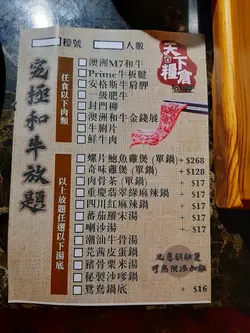 檯號 人數
天下糧倉
究極和牛放題
任食以下肉類
澳洲M7和牛
Prime牛板腱
安格斯牛肩胛
一級肥牛
封門柳
澳洲和牛金錢展
牛脷片
鮮牛肉
以上放題任選以下湯底
螺片鮑魚雞煲 (單鍋) + $268
奇味雞煲 (單鍋) + $128
肉骨茶 (單鍋) + $17
重慶翡翠綠麻辣鍋 + $17
四川紅麻辣鍋 + $17
蕃茄羅宋湯 + $17
喇沙湯 + $17
潮汕牛骨湯
芫茜皮蛋鍋
豬骨粟米湯
秘製沙嗲鍋
鴛鴦鍋底 + $16
凡惠顧雞煲
可無限添加雞